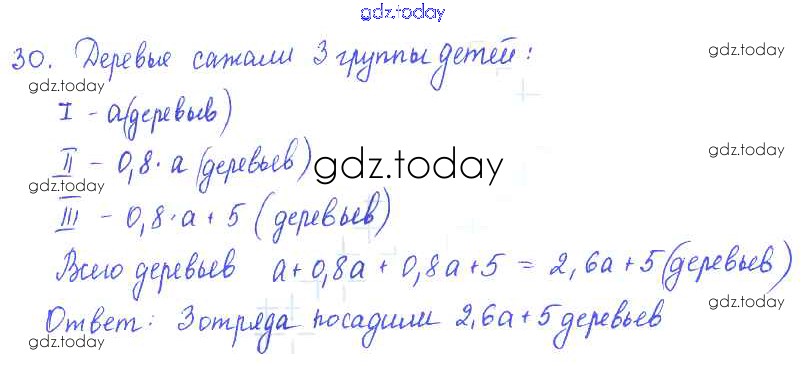 gdz.today
30. Деревые сажали 3 группы детей:
gdz.today
gdz.today
I - a (деревьев)
II - 0,8 · a (деревьев)
gdz.today
gdz.today
gdz.today
III - 0,8 · a + 5 (деревьев)
gdz.today
Всего деревьев a + 0,8a + 0,8a + 5 = 2,6a + 5 (деревьев)
gdz.today
Ответ: 3 отряда посадили 2,6a + 5 деревьев
gdz.today